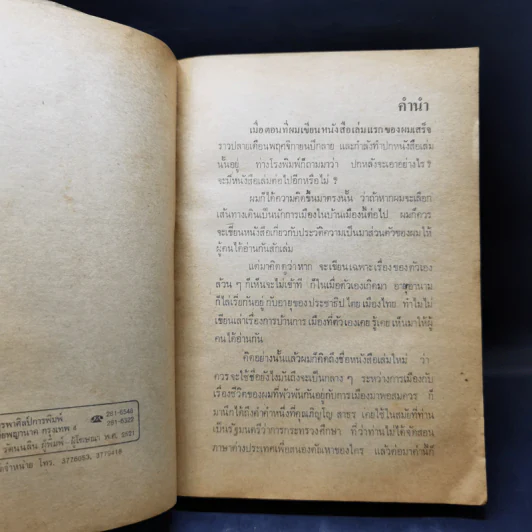 คำนำ
เมื่อตอนที่ผมเขียนหนังสือเล่มแรกของผมเสร็จ
ราวปลายเดือนพฤศจิกายนปีกลาย และกำลังทำปกหนังสือเล่ม
นั้นอยู่ ทางโรงพิมพ์ก็ถามมาว่า ปกหลังจะเอาอย่างไร ?
จะมีหนังสือเล่มต่อไปอีกหรือไม่ ?
ผมก็ได้ความคิดขึ้นมาตรงนั้น ว่าถ้าหากผมจะเลือก
เส้นทางเดินเป็นนักการเมืองในบ้านเมืองนี้ต่อไป ผมก็ควร
จะเขียนหนังสือเกี่ยวกับประวัติความเป็นมาส่วนตัวของผมให้
ผู้คนได้อ่านกันสักเล่ม
แต่มาคิดดูว่าหาก จะเขียนเฉพาะเรื่องของตัวเอง
ล้วน ๆ ก็เห็นจะไม่เข้าที ก็ในเมื่อตัวเองเกิดมา อายุอานาม
ก็ไล่เรี่ยกันอยู่กับอายุของประชาธิปไตยเมืองไทย ทำไมไม่
เขียนเล่าเรื่องการบ้านการเมืองที่ตัวเองเคยรู้เคยเห็นมาให้ผู้
คนได้อ่านกัน
คิดอย่างนั้นแล้วผมก็คิดถึงชื่อหนังสือเล่มใหม่ ว่า
ควรจะใช้ชื่อยังไงมันถึงจะเป็นกลาง ๆ ระหว่างการเมืองกับ
เรื่องชีวิตของผมที่พัวพันกันอยู่กับการเมืองมาพอสมควร ก็
มานึกได้ถึงคำคำหนึ่งที่คุณภิญโญ สาธร เคยใช้ในสมัยที่ท่าน
เป็นรัฐมนตรีว่าการกระทรวงศึกษา ที่ว่าท่านไม่ได้จัดสอน
ภาษาต่างประเทศเพื่อสนองตัณหาของใคร แล้วต่อมาคำนี้ก็
รพาศิลป์การพิมพ์ ☎ 281-6540
ยพญานาค กรุงเทพ 4
วัฒนสิน ผู้พิมพ์ ผู้โฆษณา พ.ศ. 2521
จำหน่าย โทร. 3776053, 3779418